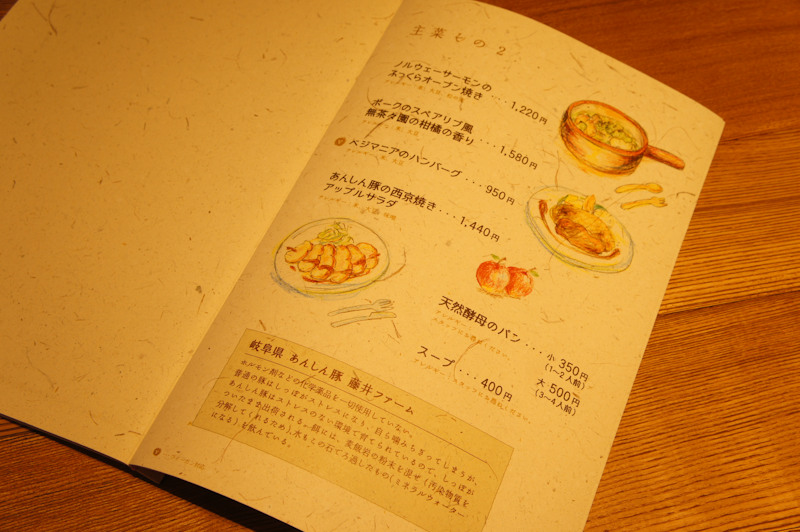 主菜その2
ノルウェーサーモンの
ふっくらオーブン焼き ・・・1,220円
ポークのスペアリブ風
無茶々園の柑橘の香り ・・・1,580円
ベジマニアのハンバーグ ・・・950円
あんしん豚の西京焼き ・・・1,440円
アップルサラダ
天然酵母のパン ・・・小 350円
(1〜2人前)
大 500円
(3〜4人前)
スープ ・・・400円
岐阜県 あんしん豚 藤井ファーム
ホルモン剤などの化学薬品を一切使用していない。
普通の豚はしっぽがストレスになり、自ら噛みちぎってしまうが、
あんしん豚はストレスのない環境で育てられているので、しっぽが
ついたまま出荷される。餌には、麦飯岩の粉末を混ぜ(汚染物質を
分解してくれるため)、水もこの石でろ過したもの(ミネラルウォーター
になる)を飲んでいる。